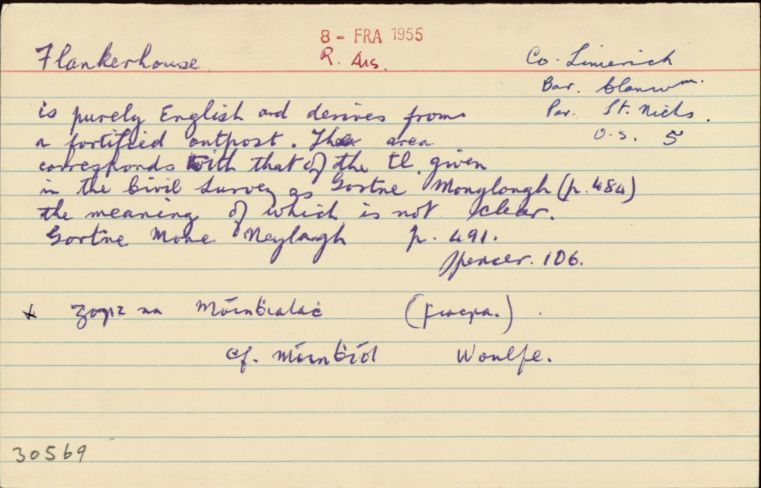 8 - FRA 1955
Flankerhouse R. Áis. Co. Limerick
Bar. Clanwm.
is purely English and derives from Par. St. Nichs.
a fortified outpost. The area O.S. 5
corresponds with that of the tl. given
in the Civil Survey as Gortne Monglongh (p. 484)
the meaning of which is not clear.
Gortne Mone Neylagh p. 491.
Spencer. 106.
+ gort na móinbialac
cf. móinbíol Woulfe.
30569